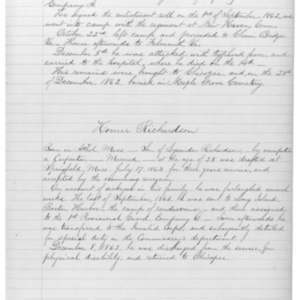 Company A.
He signed the enlistment with on the 1st of September 1862, and
went to camp with the regiment at New Haven, Conn.
October 22nd left camp and proceeded to Chain Bridge
Va. thence afterwards to Falmouth Va.
December 3rd he was attacked with typhoid fever and
carried to the hospital, where he died the 4th.
His remains were brought to Cheshire and on the 28th
of December 1862 buried in Maple Grove Cemetery
Homer Richardson
Born in Mass Son of Richardson by occupation
a Carpenter Married at the age of 28 was drafted at
Springfield, Mass July 17, 1863 for three years service and
accepted by the examining surgeon.
On account of sickness in his family he was furloughed
weeks. The last of September, 1863 he was sent to Long Island
Boston Harbor; a camp of rendezvous, and there assigned
to the 1st Provisional Guard Company Soon afterwards he
was transferred to the Invalid Corps, and subsequently detailed
for special duty in the Commissary's department.
December 8, 1863, he was discharged from the service for
physical disability, and returned to Cheshire.